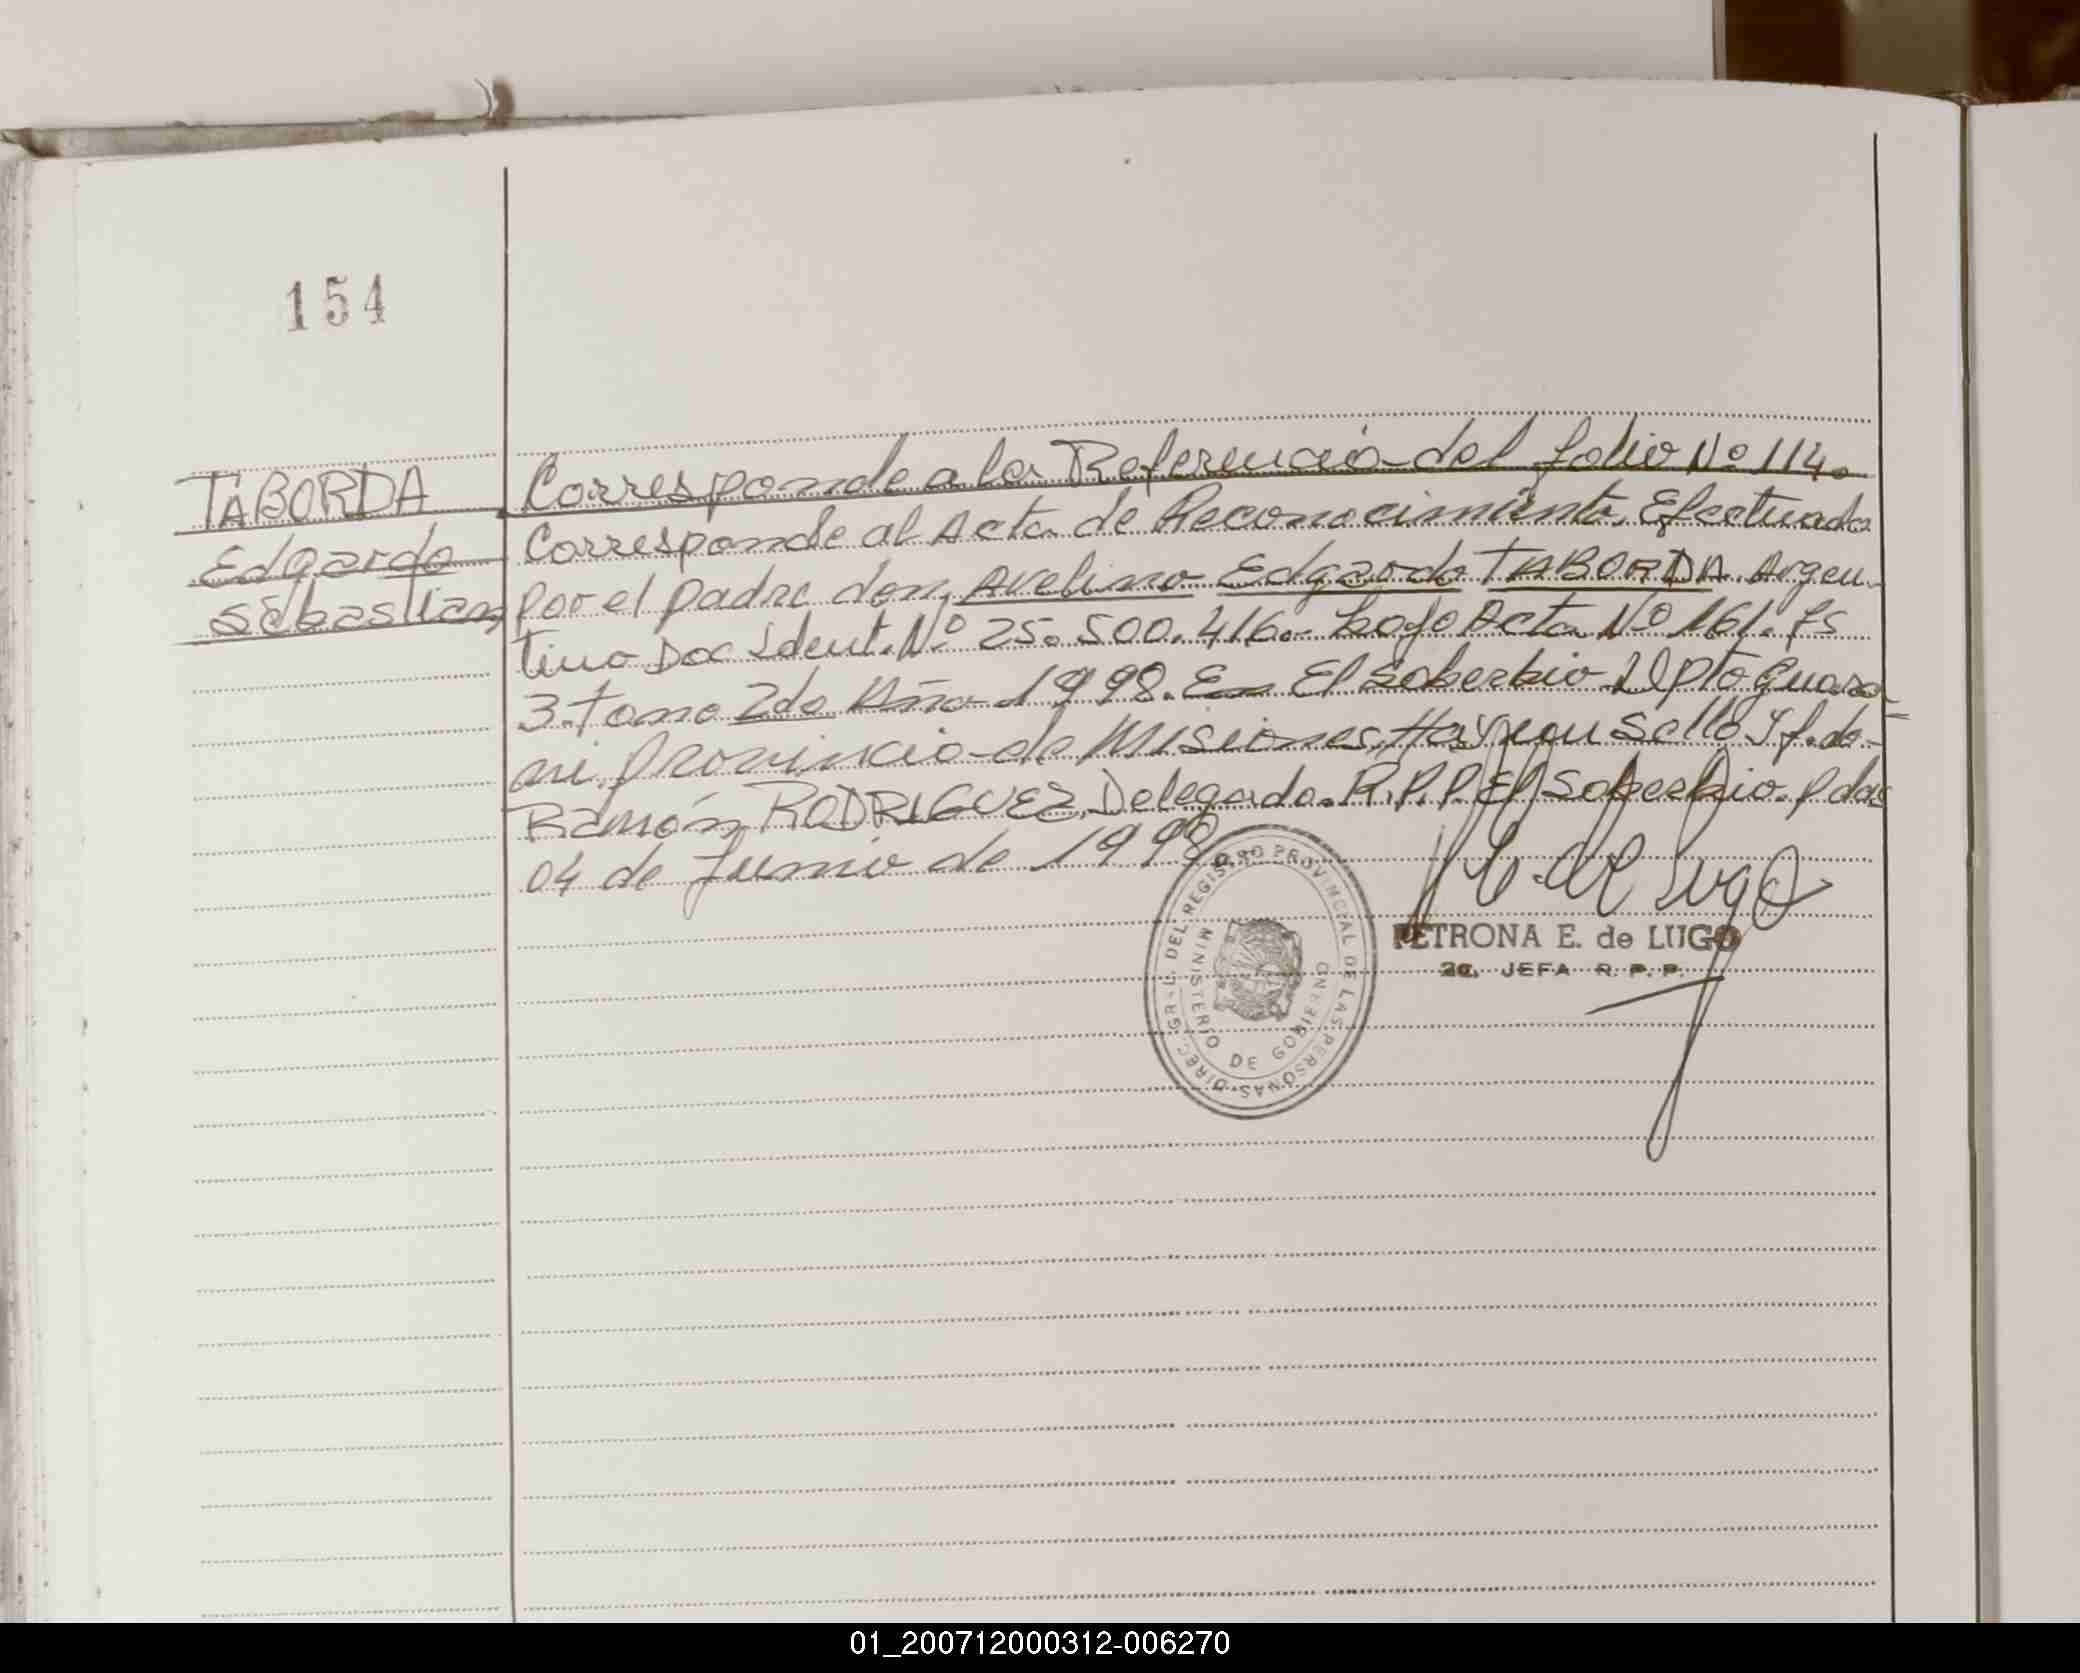 154
TABORDA
Edgardo
Sebastian
Corresponde a la Referencia del folio Nº 114.
Corresponde al Acta de Reconocimiento, Efectuada
por el padre don, Avelino Edgardo TABORDA. Argen-
tino Doc Ident. Nº 25.500.416.- bajo Acta Nº 161. Fs
3. tomo 2do Año 1998. En El Soberbio Dpto Guara-
ni. Provincia de Misiones, Hay un Sello Y f. do-
Ramón RODRIGUEZ, Delegado. R.P.P. El Soberbio. Pdas
04 de Junio de 1998
DIREC. GRAL. DEL REGISTRO PROVINCIAL DE LAS PERSONAS
MINISTERIO DE GOBIERNO
PETRONA E. de LUGO
2a. JEFA R. P. P.
01_200712000312-006270